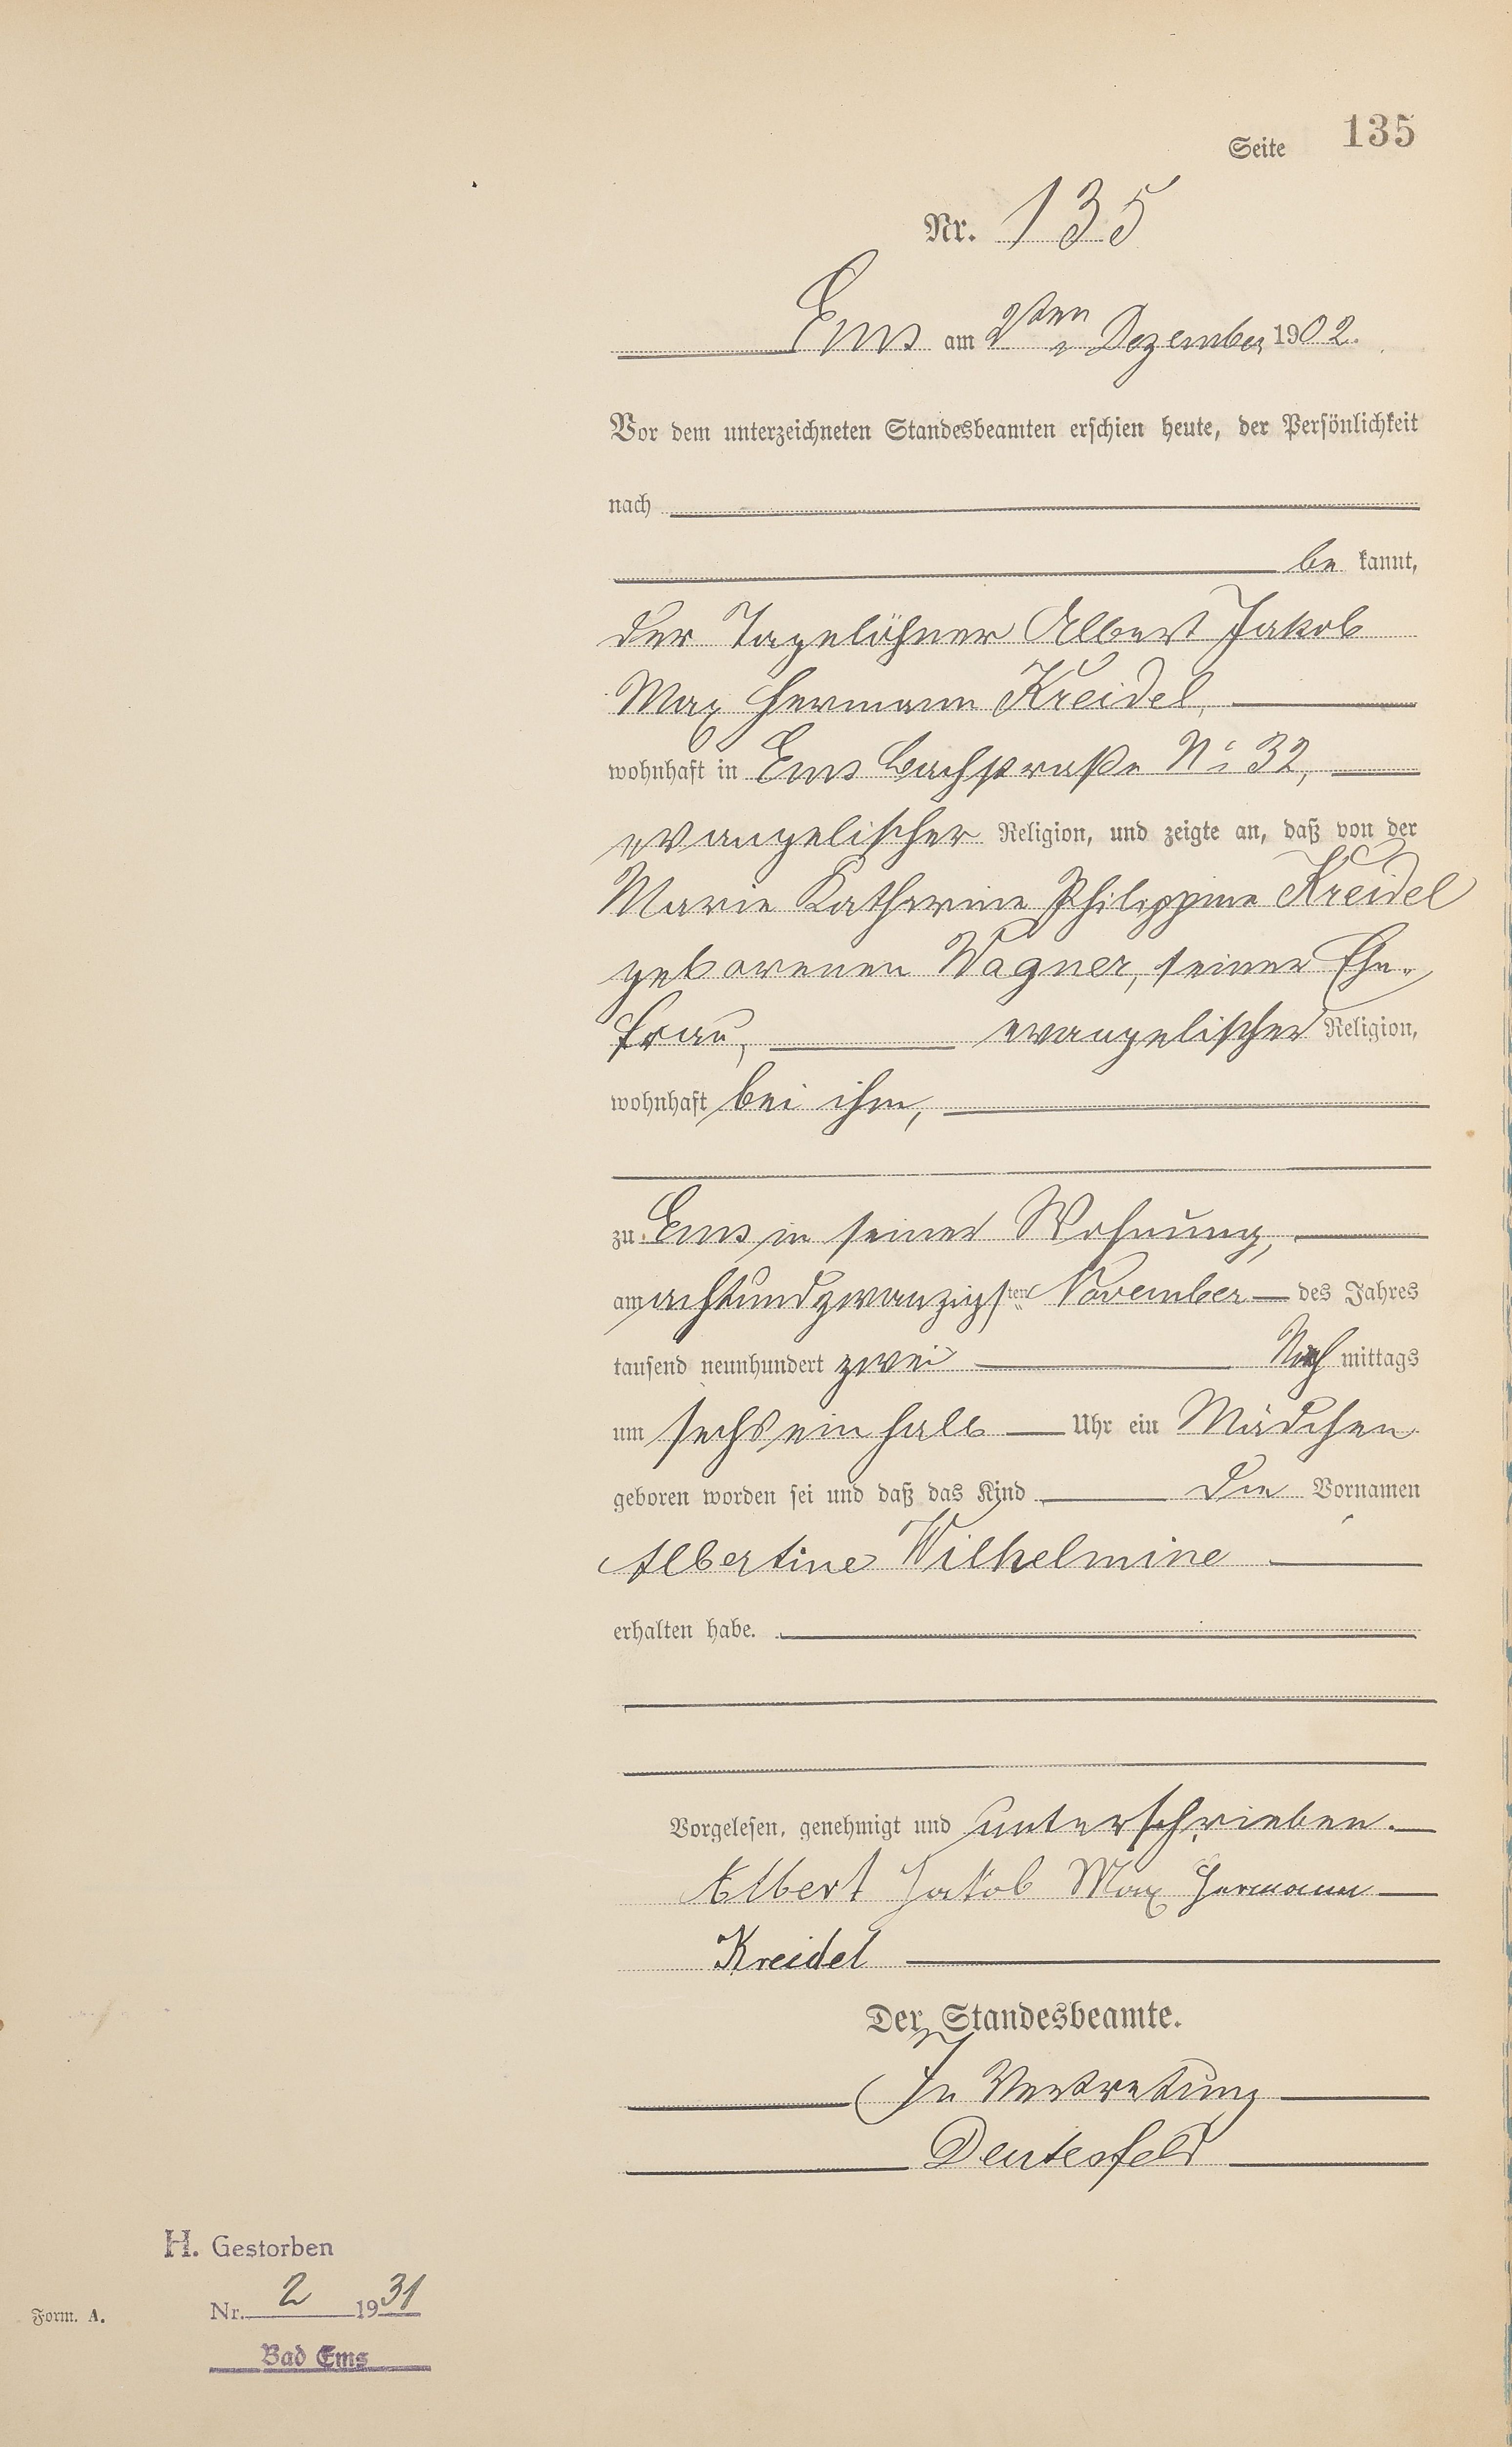 Seite 135
Nr. 135
Ems am 2ten Dezember 1902.
Vor dem unterzeichneten Standesbeamten erschien heute, der Persönlichkeit
nach
be kannt,
der Tagelöhner Albert Jakob
Max Hermann Kreidel,
wohnhaft in Ems Bachstraße No 32,
evangelischer Religion, und zeigte an, daß von der
Marie Katharine Philippine Kreidel
geborenen Wagner, seiner Ehe-
frau, evangelischer Religion,
wohnhaft bei ihm,
zu Ems in seiner Wohnung,
am achtundzwanzigsten November des Jahres
tausend neunhundert zwei Nach mittags
um sechs ein halb Uhr ein Mädchen
geboren worden sei und daß das Kind die Vornamen
Albertine Wilhelmine
erhalten habe.
Vorgelesen, genehmigt und unterschrieben.
Albert Jakob Max Hermann
Kreidel
Der Standesbeamte.
In Vertretung
Deutesfeld
H. Gestorben
Nr. 2 1931
Form. A.
Bad Ems